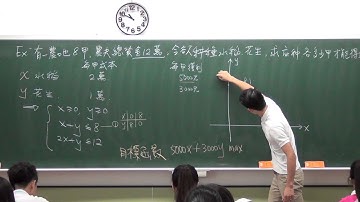 Ex: 有一農地8甲,農夫總資金12萬,今分種種水稻、花生,求各種各多少甲才能得
每甲成本 每甲獲利
x 水稻 2萬 5000元
y 花生 1萬 3000元
x≥0, y≥0
x+y≤8 —①
2x+y≤12
x 0 8
y 8 0
目標函數 5000x+3000y max
y
x